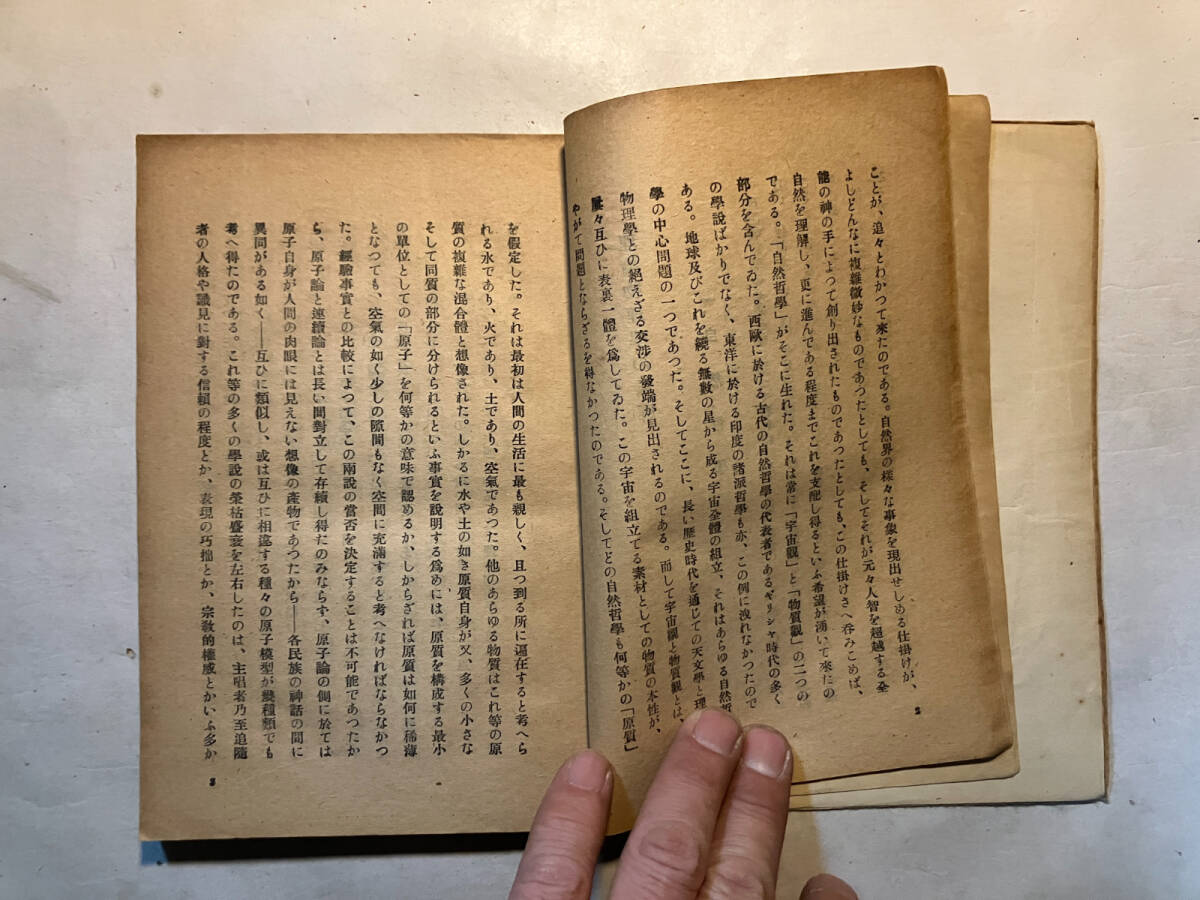 ことが、追々とわかつて來たのである。自然界の様々な事象を現出せしめる仕掛けが、
よしどんなに複雜微妙なものであつたとしても、そしてそれが元々人智を超越する全
能の神の手によつて創り出されたものであつたとしても、この仕掛けさへ呑みこめば、
自然を理解し、更に進んである程度までこれを支配し得るといふ希望が湧いて來たの
である。「自然哲學」がそこに生れた。それは常に「宇宙觀」と「物質觀」の二つの
部分を含んでゐた。西歐に於ける古代の自然哲學の代表者であるギリシャ時代の多く
の學說ばかりでなく、東洋に於ける印度の諸派哲學も亦、この例に洩れなかつたので
ある。地球及びこれを繞る無數の星から成る宇宙全體の組立、それはあらゆる自然哲
學の中心問題の一つであつた。そしてここに、長い歷史時代を通じての天文學と理
物理學との絕えざる交渉の發端が見出されるのである。而して宇宙觀と物質觀とは、
屢々互ひに表裏一體を爲してゐた。この宇宙を組立てる素材としての物質の本性が、
やがて問題とならざるを得なかつたのである。そしてどの自然哲學も何等かの「原質」
2
を假定した。それは最初は人間の生活に最も親しく、且つ到る所に遍在すると考へら
れる水であり、火であり、土であり、空氣であつた。他のあらゆる物質はこれ等の原
質の複雜な混合體と想像された。しかるに水や土の如き原質自身が又、多くの小さな
そして同質の部分に分けられるといふ事實を說明する爲めには、原質を構成する最小
の單位としての「原子」を何等かの意味で認めるか、しからざれば原質は如何に稀薄
となつても、空氣の如く少しの隙間もなく空間に充滿すると考へなければならなかつ
た。經驗事實との比較によつて、この兩說の當否を決定することは不可能であつたか
ら、原子論と連續論とは長い間對立して存續し得たのみならず、原子論の側に於ては
原子自身が人間の肉眼には見えない想像の產物であつたから――各民族の神話の間に
異同がある如く――互ひに類似し、或は互ひに相違する種々の原子模型が幾種類でも
考へ得たのである。これ等の多くの學說の榮枯盛衰を左右したのは、主唱者乃至追隨
者の人格や識見に對する信賴の程度とか、表現の巧拙とか、宗敎的權威とかいふ多か
3